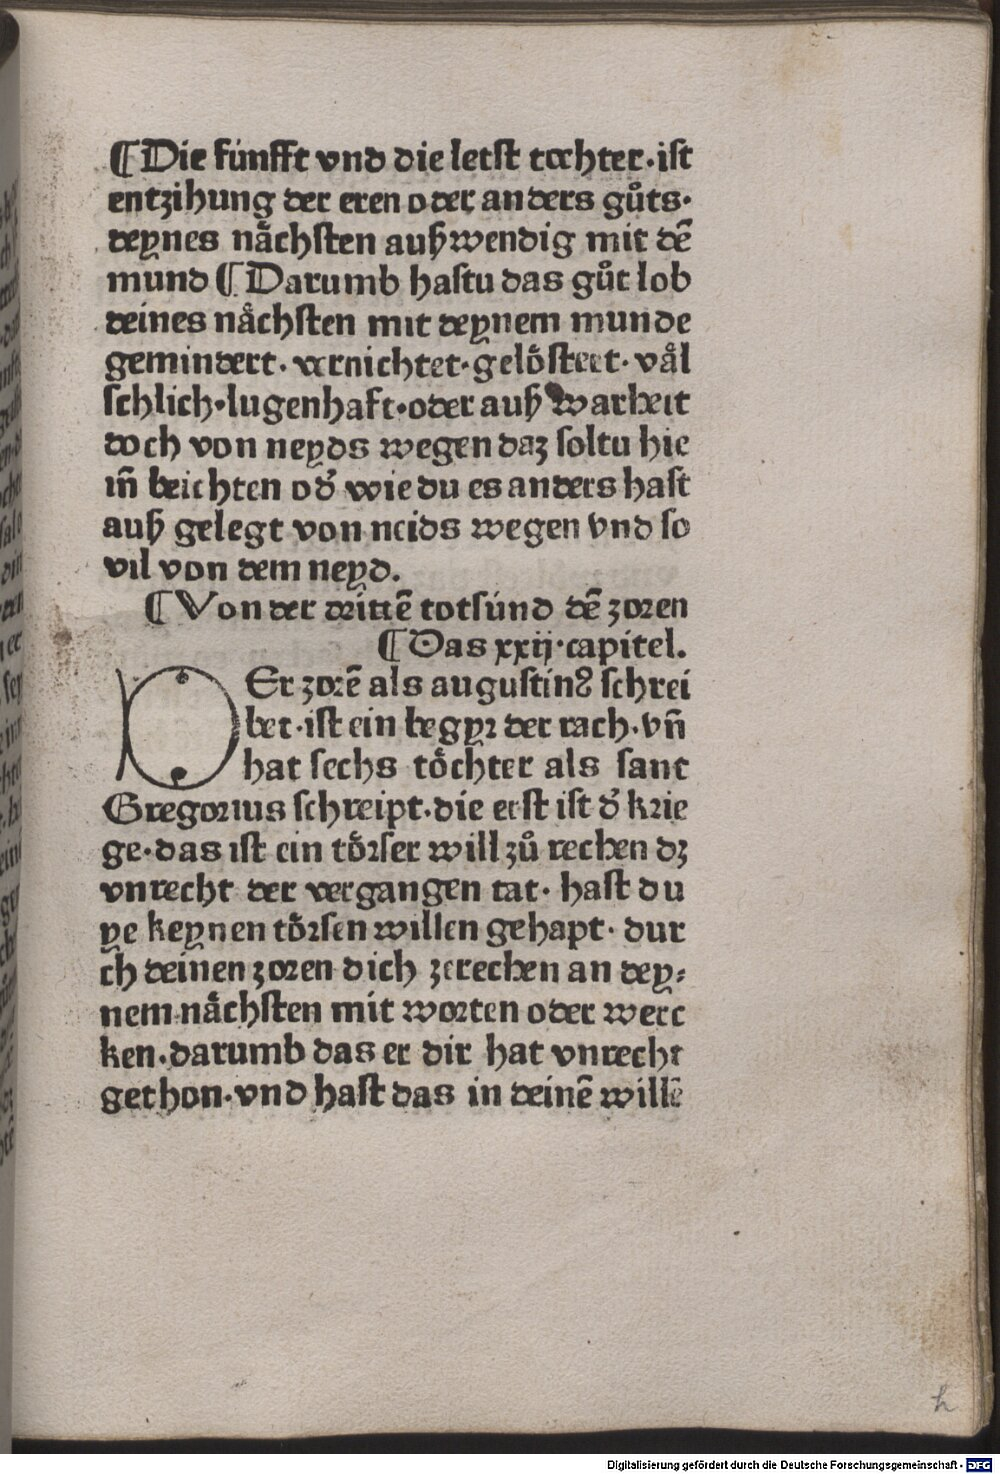 ¶Die fünfft vnd die letst tochter·ist
entzihung der eren oder anders gůts·
deynes nächsten außwendig mit dē
mund ¶Darumb hastu das gůt lob
deines nächsten mit deynem munde
gemindert·vernichtet·gelöstert·väl
schlich·lugenhaft·oder auß warheit
doch von neyds wegen daz soltu hie
iñ beichten od̓ wie du es anders hast
auß gelegt von neids wegen vnd so
vil von dem neyd.
¶Von der drittē totsünd dē zoren
¶Das xxij·capitel.
DEr zorē als augustinꝰ schrei
bet·ist ein begyr der rach·vñ
hat sechs töchter als sant
Gregorius schreipt·die erst ist d̓ krie
ge·das ist ein törser will zů rechen dz
vnrecht der vergangen tat· hast du
ye keynen törsen willen gehapt· dur
ch deinen zoren dich zerechen an dey⸗
nem nächsten mit worten oder werc
ken·darumb das er dir hat vnrecht
gethon·vnd hast das in deinē willē
h
Digitalisierung gefördert durch die Deutsche Forschungsgemeinschaft - DFG